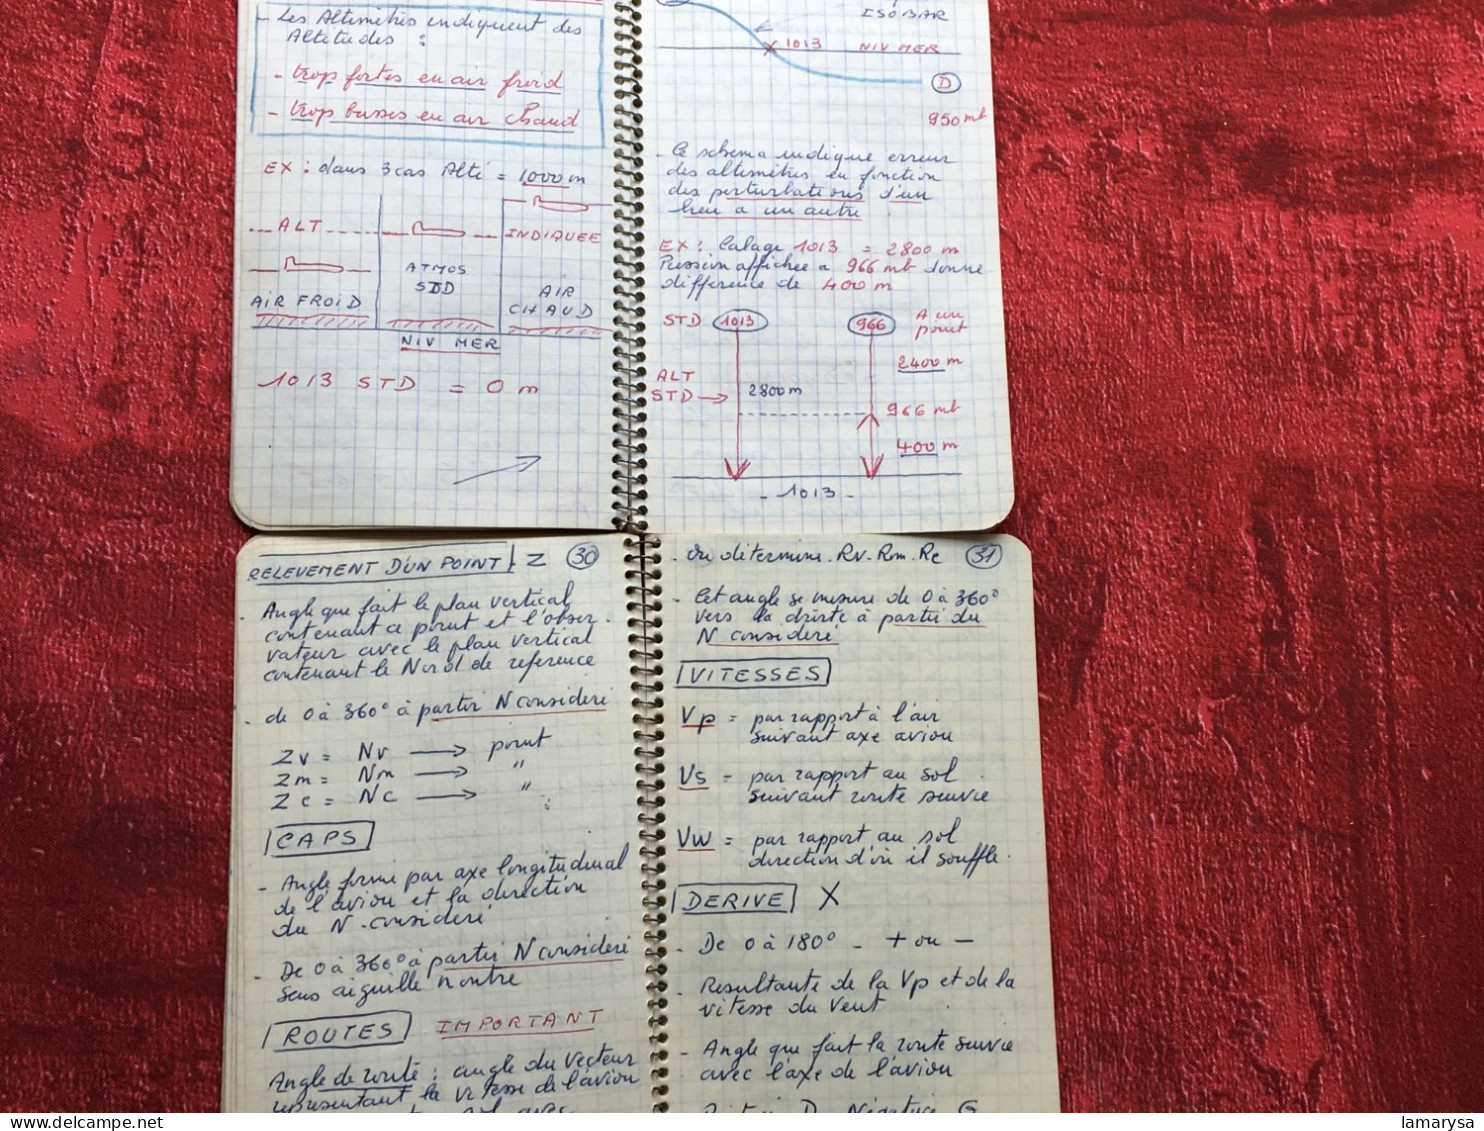 - Les Altimètres indiquent des
Altitudes :
- trop fortes en air froid
- trop basses en air chaud
EX : dans 3 cas Alté = 1000 m
ALT
INDIQUEE
ATMOS
STD
AIR FROID
AIR
CHAUD
NIV MER
1013 STD = 0 m
ISOBAR
1013 NIV MER
D
950 mb
- Ce schema indique erreur
des altimètres en fonction
des perturbations d'un
lieu a un autre
EX : Calage 1013 = 2800 m
Pression affichee a 966 mb donne
difference de 400 m
STD 1013
966
A un
point
2400 m
ALT
STD →
2800 m
966 mb
400 m
- 1013 -
RELEVEMENT D'UN POINT : Z 30
- Angle que fait le plan vertical
contenant ce point et l'obser.
vateur avec le plan vertical
contenant le Nord de reference
- de 0 à 360° à partir N consideré
Zv = Nv → point
Zm = Nm → "
Zc = Nc → "
CAPS
- Angle forme par axe longitudinal
de l'avion et la direction
du N - consideré
- De 0 à 360° à partir N consideré
sens aiguille montre
ROUTES IMPORTANT
Angle de route : angle du vecteur
representant la vitesse de l'avion
- On determine Rv - Rm - Rc 31
- Cet angle se mesure de 0 à 360°
vers la droite à partir du
N consideré
VITESSES
Vp = par rapport à l'air
suivant axe avion
Vs = par rapport au sol
suivant route suivie
Vw = par rapport au sol
direction d'où il souffle.
DERIVE X
- De 0 à 180° - + ou -
- Resultante de la Vp et de la
vitesse du vent
- Angle que fait la route suivie
avec l'axe de l'avion
lamarysa